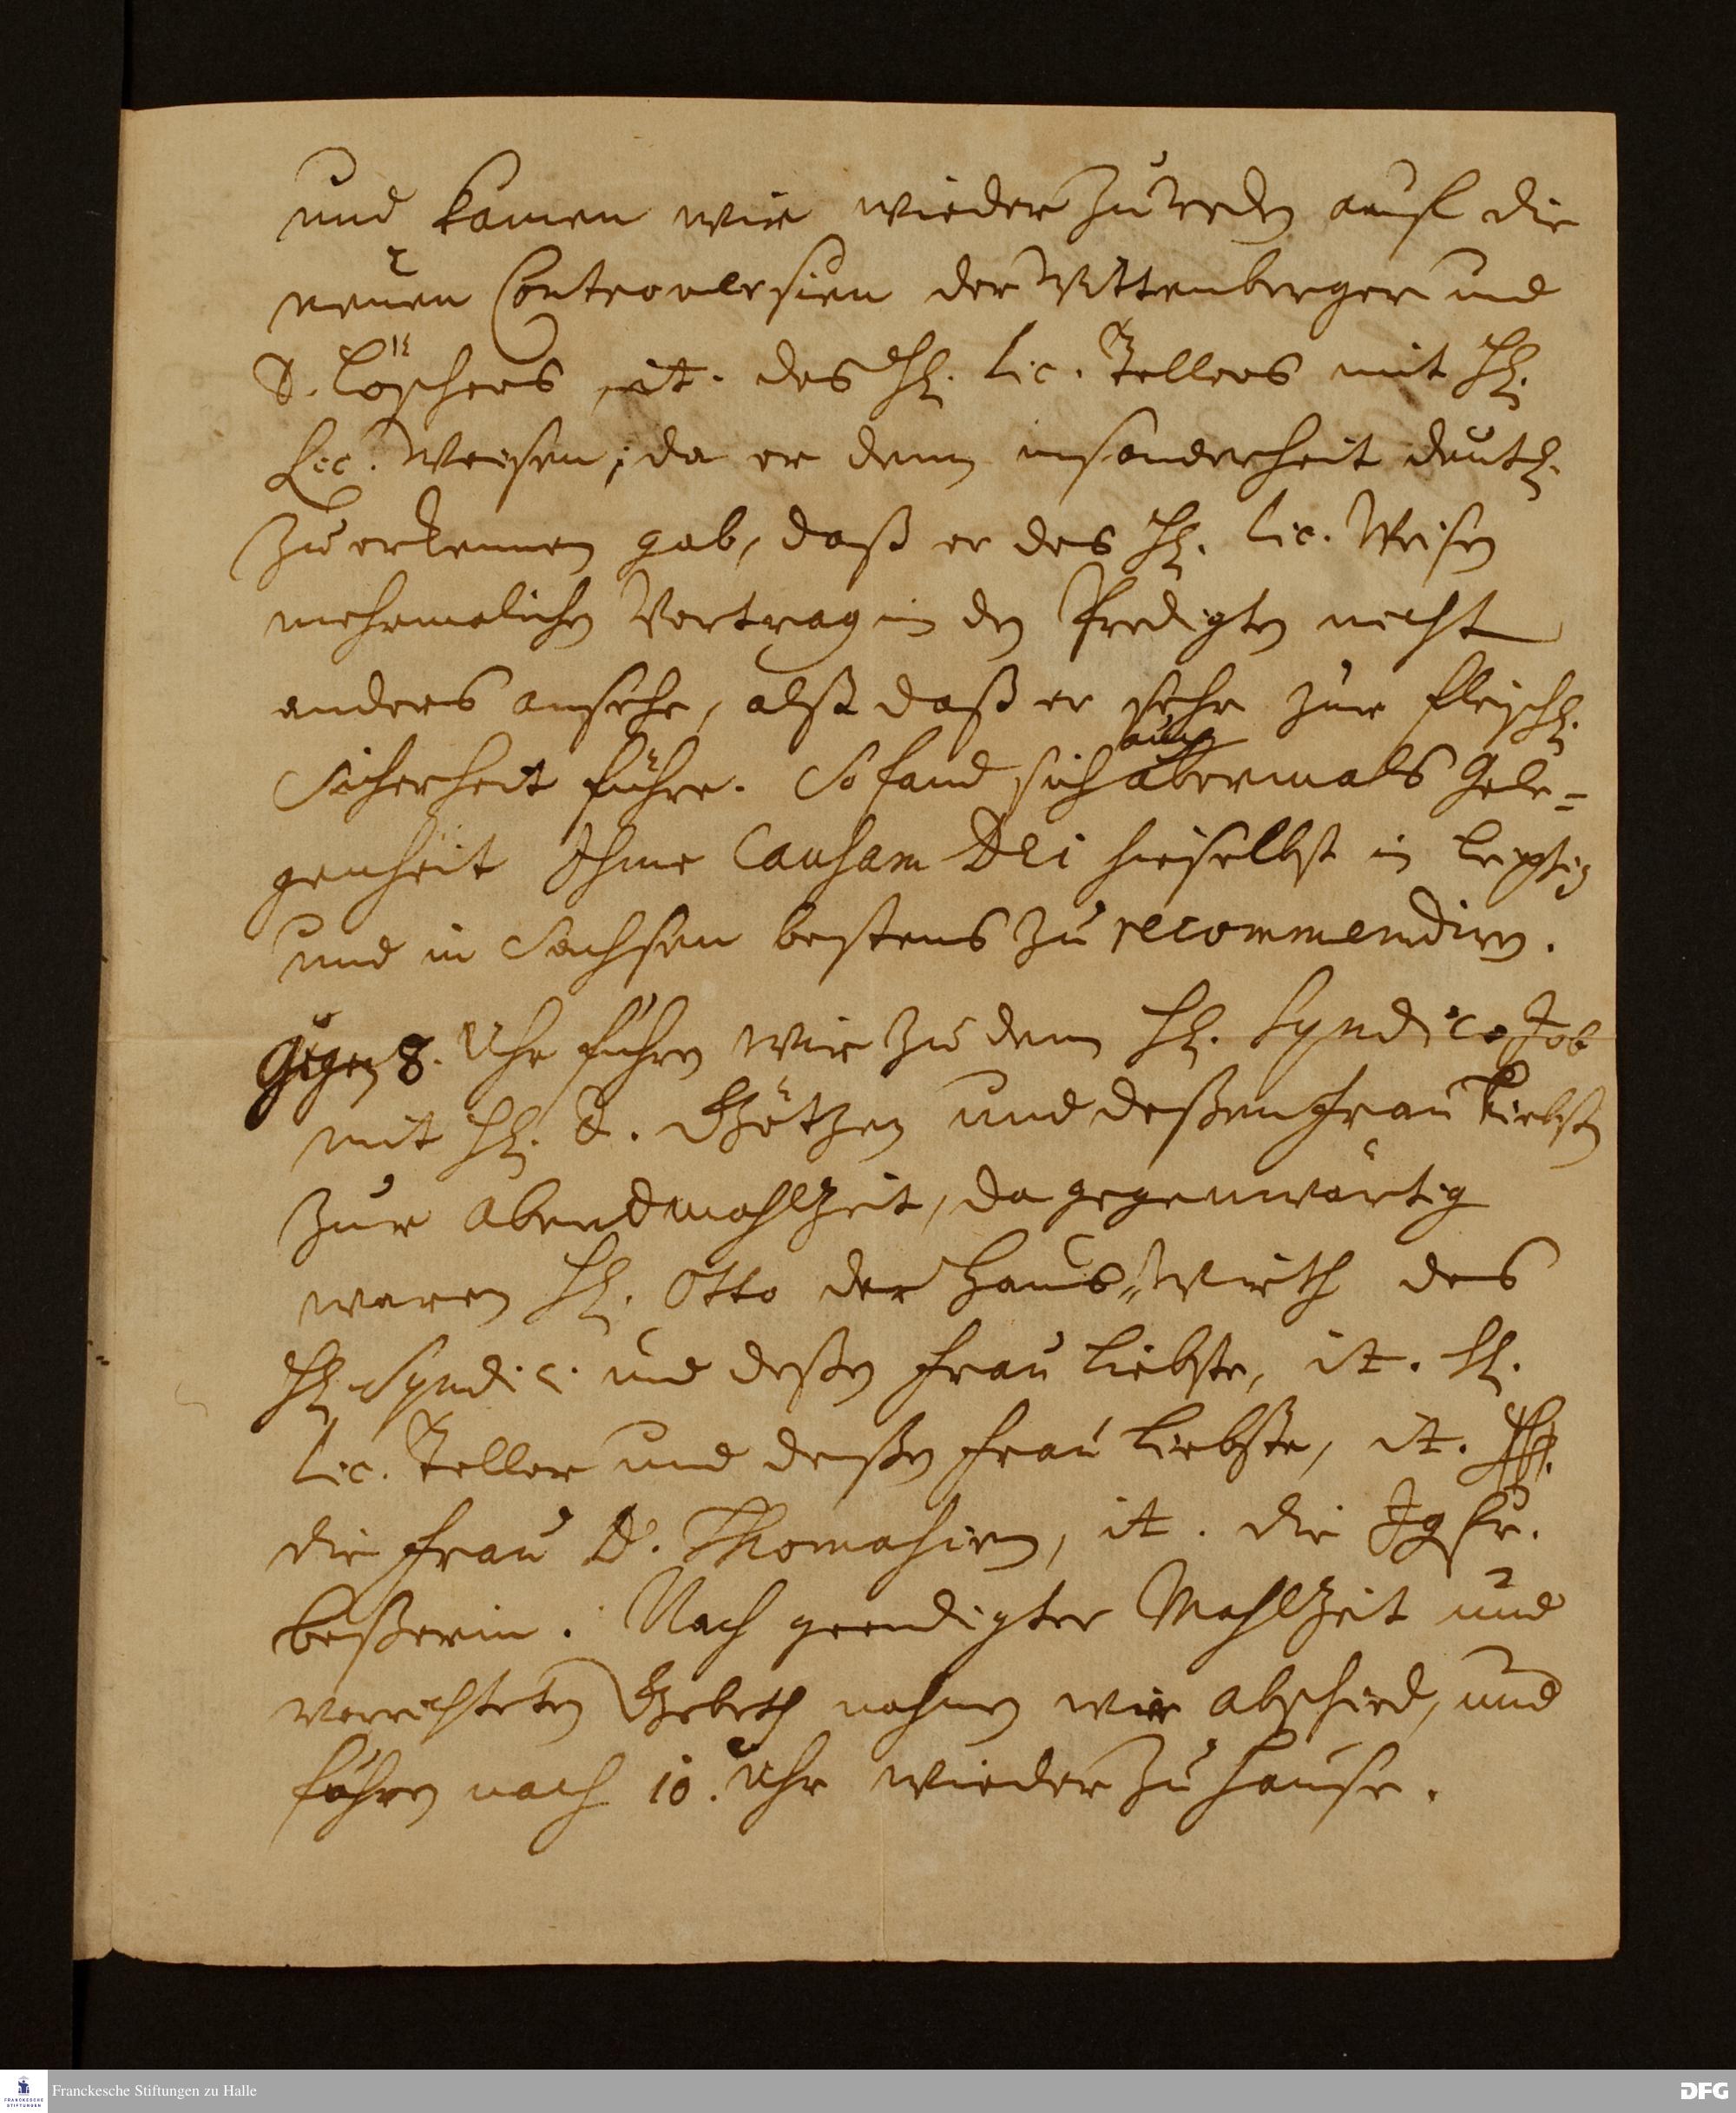 und kamen wir wieder zu reden auf die
neuen Controversien der Wittenberger und
D. Löschers it. des H. Lic. Tellers mit H.
Lic. Weisen; da er denn insonderheit deutl.
zu erkennen gab, daß er des H. Lic. Weisen
mehrmalichen Vortrag in den Predigten nicht
anders ansehe, alß daß er sehr zur fleischl.
Sicherheit führe. So fand sich abermals Gele-
genheit Ihme Causam Dei hieselbst in Leipzig
und in Sachsen bestens zu recommendiren.
Gegen 8. Uhr fuhren wir zu dem H. Syndico Job
mit H. D. Götzen und deßen Frau Liebsten
zur Abendmahlzeit, da gegenwärtig
waren H. Otto der Hauß-Wirth des
H. Syndici. und deßen Frau Liebste, it. H.
Lic. Teller und deßen Frau Liebste, it.
die Frau D. Thomasien, it. die Jgfr.
Beßerin. Nach geendigter Mahlzeit und
verrichteten Gebeth nahmen wir Abschied, und
fuhren nach 10. Uhr wieder zu Hause.
Franckesche Stiftungen zu Halle
FRANCKESCHE STIFTUNGEN
DFG